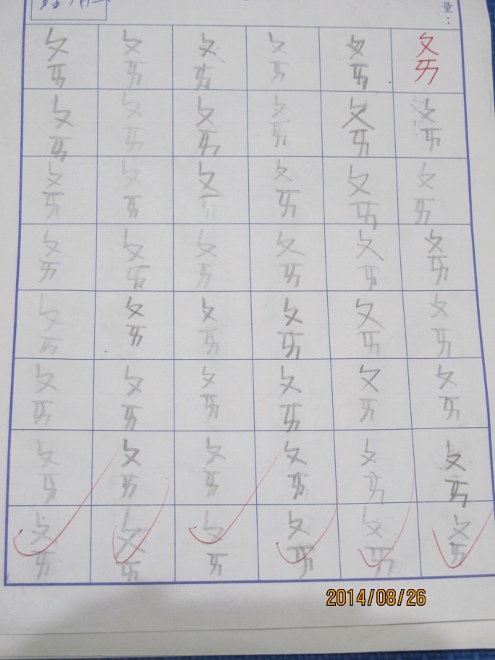 量：
ㄆㄞ ㄆㄞ ㄆㄞ ㄆㄞ ㄆㄞ ㄆㄞ ㄆㄞ ㄆㄞ
ㄆㄞ ㄆㄞ ㄆㄞ ㄆㄞ ㄆㄞ ㄆㄞ ㄆㄞ ㄆㄞ
ㄆㄞ ㄆㄞ ㄆㄞ ㄆㄞ ㄆㄞ ㄆㄞ ㄆㄞ ㄆㄞ
ㄆㄞ ㄆㄞ ㄆㄞ ㄆㄞ ㄆㄞ ㄆㄞ ㄆㄞ ㄆㄞ
ㄆㄞ ㄆㄞ ㄆㄞ ㄆㄞ ㄆㄞ ㄆㄞ ㄆㄞ ㄆㄞ
ㄆㄞ ㄆㄞ ㄆㄞ ㄆㄞ ㄆㄞ ㄆㄞ ㄆㄞ ㄆㄞ
2014/08/26